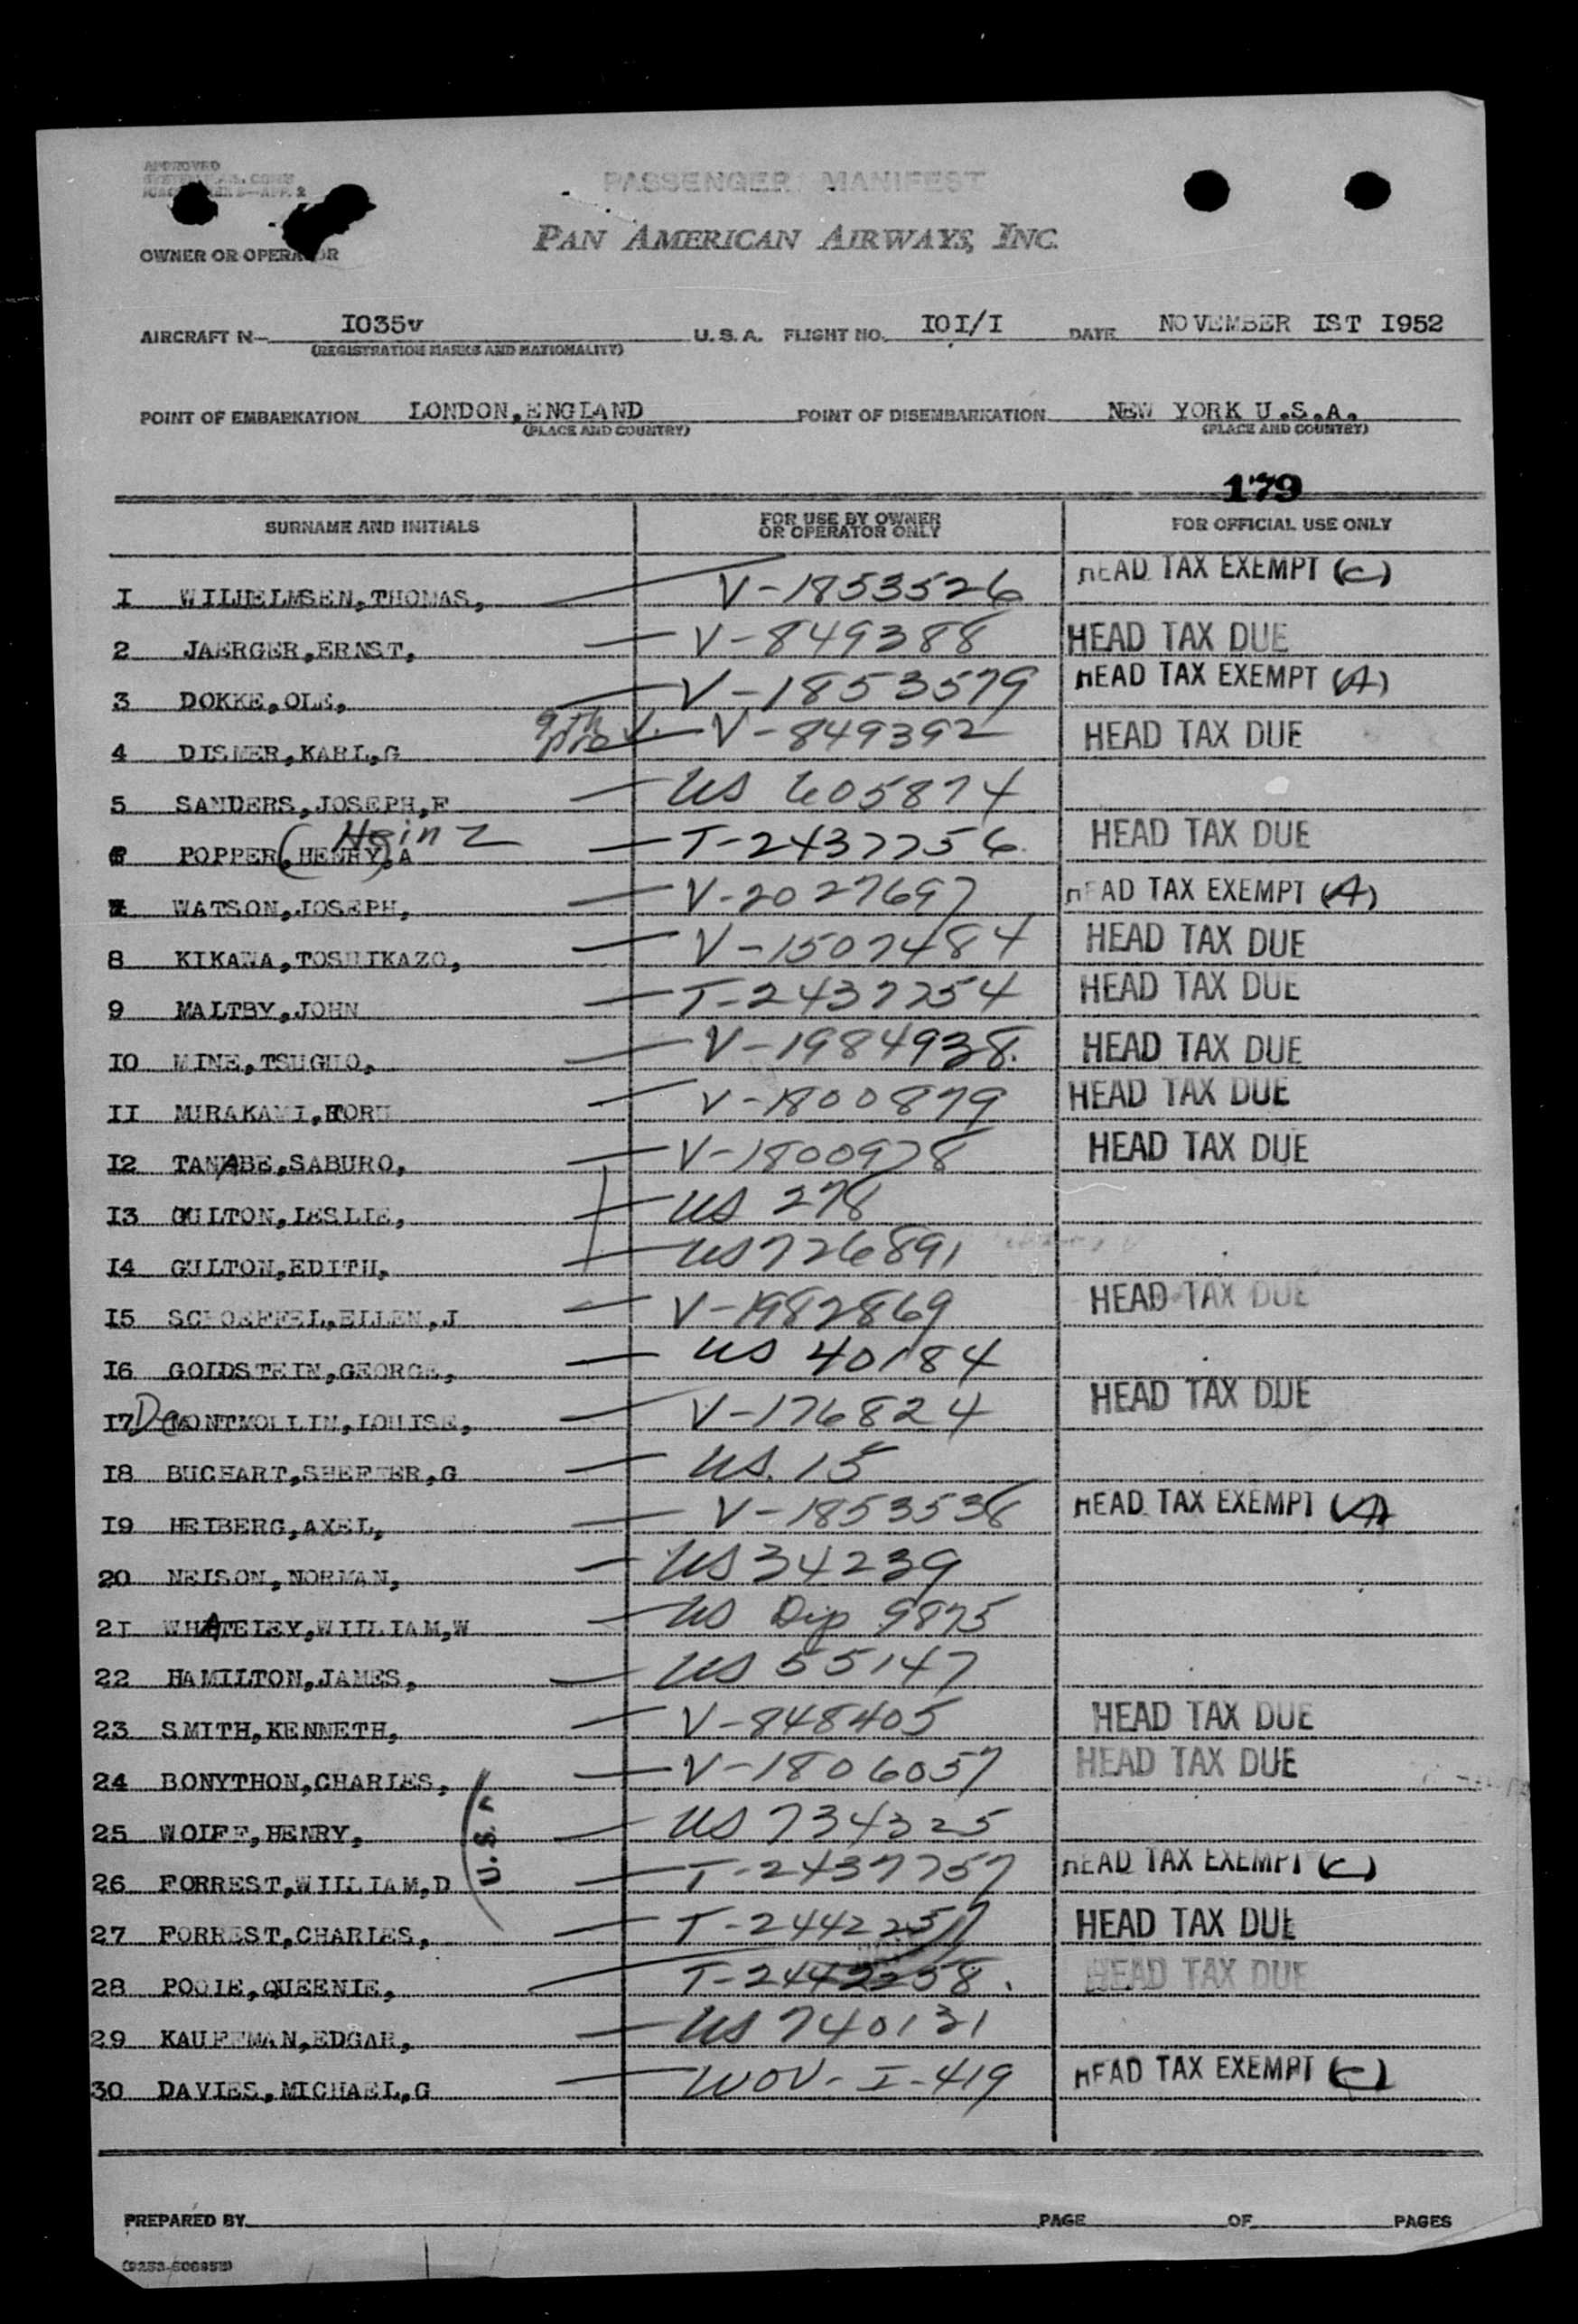 APPROVED
PASSENGER MANIFEST
PAN AMERICAN AIRWAYS, INC.
OWNER OR OPERATOR
AIRCRAFT N— I035v U. S. A. FLIGHT NO. IOI/I DATE NOVEMBER IST I952
(REGISTRATION MARKS AND NATIONALITY)
POINT OF EMBARKATION LONDON,ENGLAND POINT OF DISEMBARKATION NEW YORK U.S.A.
(PLACE AND COUNTRY) (PLACE AND COUNTRY)
179
SURNAME AND INITIALS FOR USE BY OWNER OR OPERATOR ONLY FOR OFFICIAL USE ONLY
I WILHELMSEN,THOMAS, V-1853526 HEAD TAX EXEMPT (C)
2 JAERGER,ERNST, V-849388 HEAD TAX DUE
3 DOKKE,OLE, V-1853579 HEAD TAX EXEMPT (A)
4 DISMER,KARL,G V-849392 HEAD TAX DUE
5 SANDERS,JOSEPH,F US 605874
Heinz
6 POPPER(,HENRY),A T-2437756 HEAD TAX DUE
7 WATSON,JOSEPH, V-2027697 HEAD TAX EXEMPT (A)
8 KIKAWA,TOSHIKAZO, V-1507484 HEAD TAX DUE
9 MALTBY,JOHN T-2437754 HEAD TAX DUE
IO MINE,TSUGUO, V-1984938. HEAD TAX DUE
II MIRAKAMI,TORU V-1800879 HEAD TAX DUE
I2 TANABE,SABURO, V-1800978 HEAD TAX DUE
I3 GULTON,LESLIE, US 278
I4 GULTON,EDITH, US 726891
I5 SCHOEFFEL,ELLEN,J V-1982869 HEAD TAX DUE
I6 GOLDSTEIN,GEORGE, US 40184
I7 De MONTMOLLIN,LOUISE, V-176824 HEAD TAX DUE
I8 BUCHART,SHEFTER,G US. 15
I9 HEIBERG,AXEL, V-1853538 HEAD TAX EXEMPT (A)
20 NELSON,NORMAN, US 34239
2I WHATELEY,WILLIAM,W US Dip 9875
22 HAMILTON,JAMES, US 55147
23 SMITH,KENNETH, V-848405 HEAD TAX DUE
24 BONYTHON,CHARLES, V-1806057 HEAD TAX DUE
25 WOLFF,HENRY, US 734325
26 FORREST,WILLIAM,D T-2437757 HEAD TAX EXEMPT (C)
27 FORREST,CHARLES, T-2442257 HEAD TAX DUE
28 POOLE,QUEENIE, T-2442258. HEAD TAX DUE
29 KAUFFMAN,EDGAR, US 740131
30 DAVIES,MICHAEL,G WOV-I-419 HEAD TAX EXEMPT (C)
PREPARED BY PAGE OF PAGES